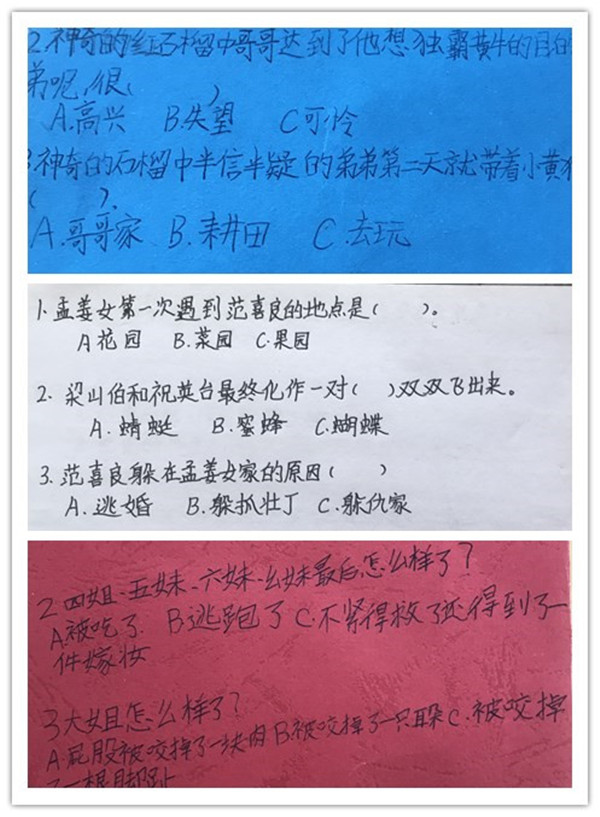 2.神奇的红石榴中哥哥达到了他想独霸黄牛的目的
弟呢,很( )
A.高兴 B.失望 C可怜
3.神奇的石榴中半信半疑的弟弟第二天就带着小黄狗
( ).
A.哥哥家 B.耕田 C.去玩
1.孟姜女第一次遇到范喜良的地点是( )。
A花园 B.菜园 C.果园
2.梁山伯和祝英台最终化作一对( )双双飞出来。
A.蜻蜓 B.蜜蜂 C.蝴蝶
3.范喜良躲在孟姜女家的原因( )
A.逃婚 B.躲抓壮丁 C.躲仇家
2.四姐、五妹、六妹、幺妹最后怎么样了?
A.被吃了. B逃跑了 C.不紧得救了还得到了一
件嫁妆
3大姐怎么样了?
A.屁股被咬掉了一块肉 B被咬掉了一只耳朵 C.被咬掉
了一根脚趾